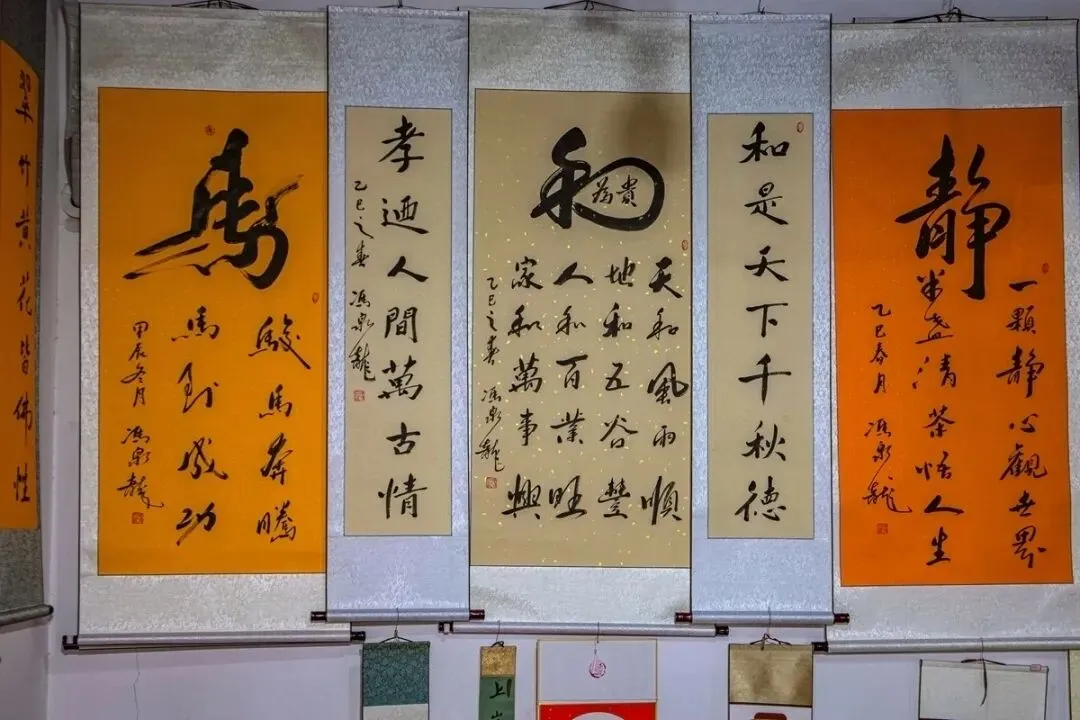 靜
一顆靜心觀世界
半盞清茶悟人生
乙巳春月 馮泉龍
和是天下千秋德
和為貴
天和風雨順
地和五谷豐
人和百業旺
家和萬事興
乙巳之春 馮泉龍
孝迺人間萬古情
乙巳之春 馮泉龍
馬
駿馬奔騰
馬到成功
甲辰冬月 馮泉龍
翠竹黄花皆佛性
上